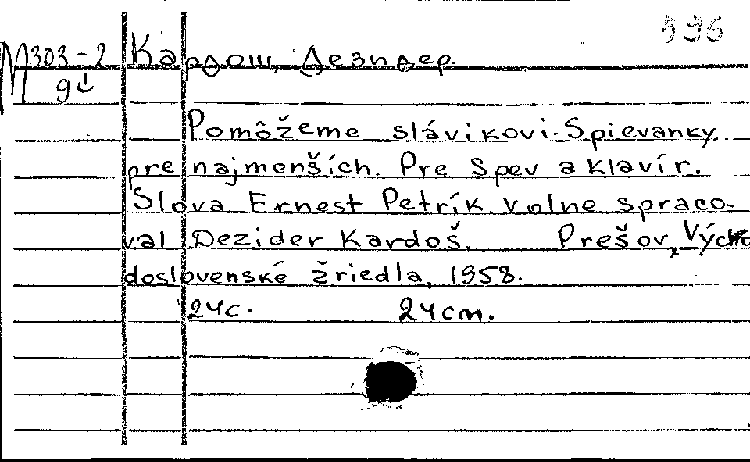 396
М303-2 Кардош, Дезидер.
9
Pomôžeme slávikovi. Spievanky
pre najmenších. Pre spev a klavír.
Slova Ernest Petrík volne spraco-
val Dezider Kardoš. Prešov, Vých
doslovenské žriedla, 1958.
24с. 24cm.